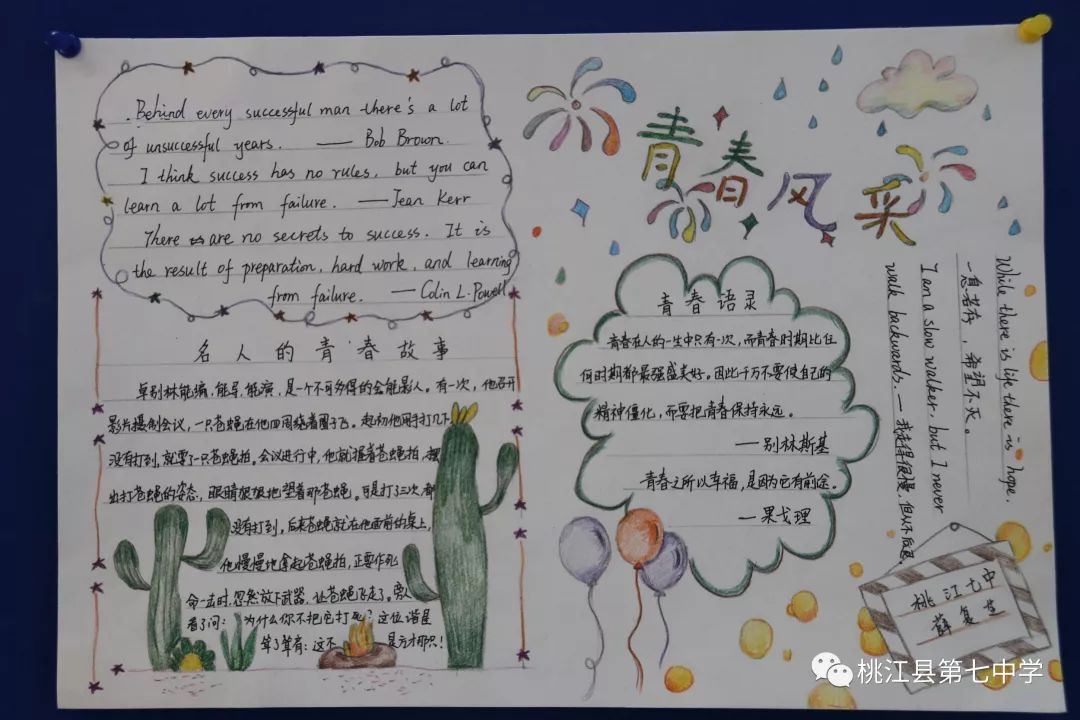 Behind every successful man there's a lot
of unsuccessful years. —— Bob Brown.
I think success has no rules, but you can
learn a lot from failure. —— Jean Kerr
There are no secrets to success. It is
the result of preparation, hard work, and learning
from failure. —— Colin L. Powell
名人的青春故事
卓别林能编,能导,能演,是一个不可多得的全能影人。有一次,他召开
影片摄制会议,一只苍蝇在他四周绕着圈子飞。起初他用手打几下
没有打到,就要了一只苍蝇拍。会议进行中,他就握着苍蝇拍,摆
出打苍蝇的姿态,眼睛狠狠地望着那苍蝇。可是打了三次,都
没有打到,后来苍蝇就在他面前的桌上,
他慢慢地拿起苍蝇拍,正要作死
命一击时,忽然放下武器,让苍蝇飞走了。旁人
看了问:为什么你不把它打死?这位谐星
耸了耸肩:这不是方才那只!
青春风采
青春语录
青春在人的一生中只有一次,而青春时期比任
何时期都最强盛美好。因此千万不要使自己的
精神僵化,而要把青春保持永远。
—别林斯基
青春之所以幸福,是因为它有前途。
—果戈理
While there is life there is hope.
一息若存,希望不灭。
I am a slow walker, but I never
walk backwards. —我走得很慢,但从不后退。
桃江七中
薛复
桃江县第七中学